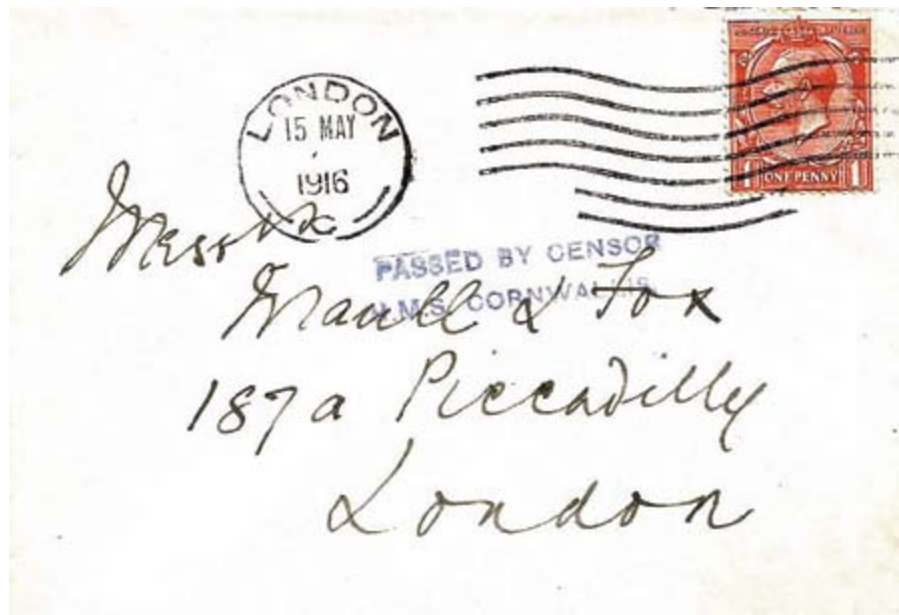 LONDON
15 MAY
1916
1 ONE PENNY 1
PASSED BY CENSOR
H.M.S. CORNWALLIS.
Messrs
Maull & Fox
187a Piccadilly
London